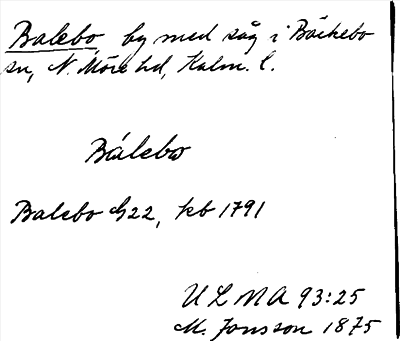 Balebo, by med såg i Bäckebo
sn, N. Möre hd, Kalm. l.
Bálebo
Balebo 22, kb 1791
ULMA 93:25
M. Jonsson 1875